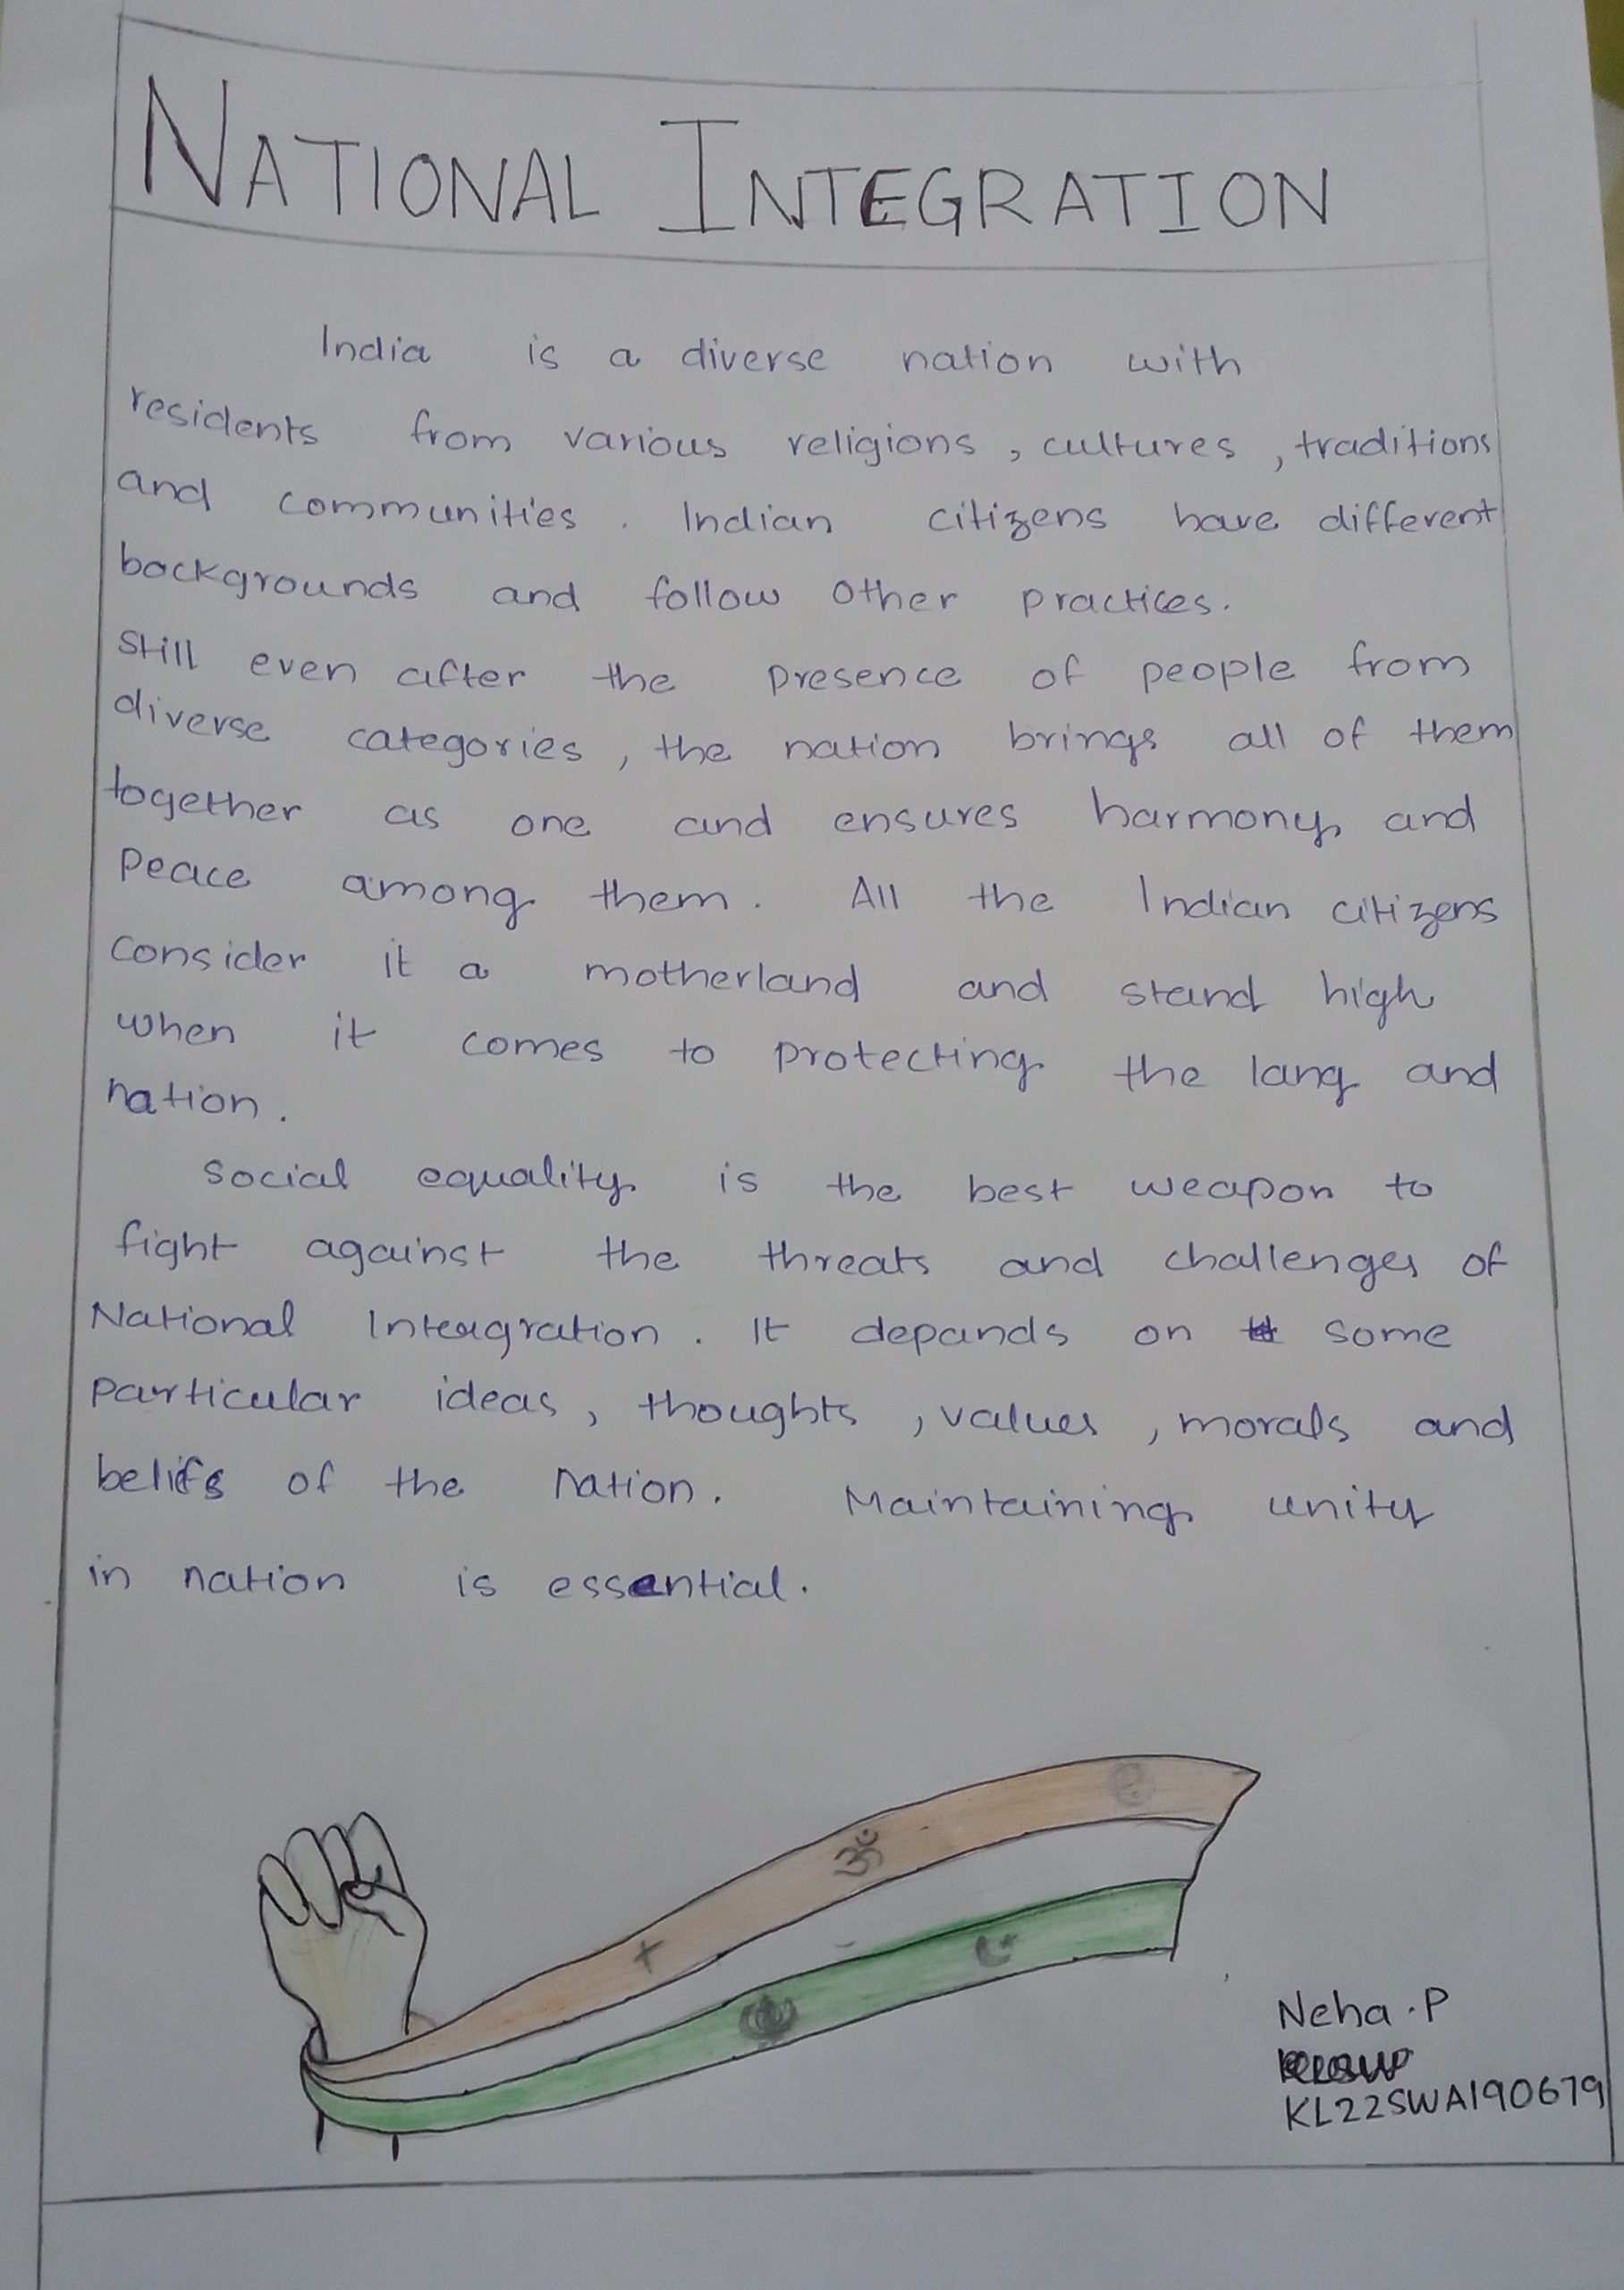 NATIONAL INTEGRATION
India is a diverse nation with
residents from various religions, cultures, traditions
and communities. Indian citizens have different
backgrounds and follow other practices.
Still even after the presence of people from
diverse categories, the nation brings all of them
together as one and ensures harmony and
Peace among them. All the Indian citizens
consider it a motherland and stand high
when it comes to protecting the lang and
nation.
Social equality is the best weapon to
fight against the threats and challenges of
National Intergration. It depands on some
particular ideas, thoughts, values, morals and
belifs of the nation. Maintaining unity
in nation is essential.
ॐ
Neha.P
KL22SWA190679